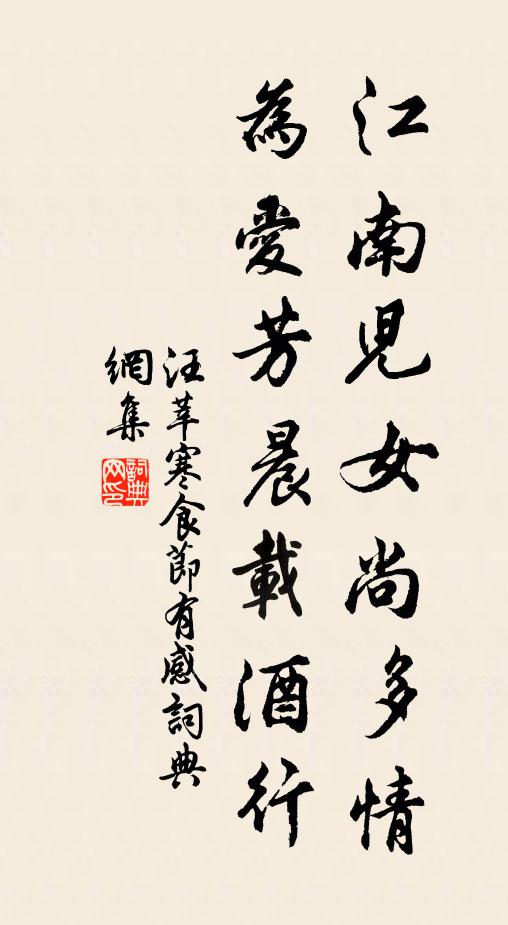 江南兒女尚多情
為愛芳晨載酒行
汪莘寒食節有感詞典
網集
詞典
网印